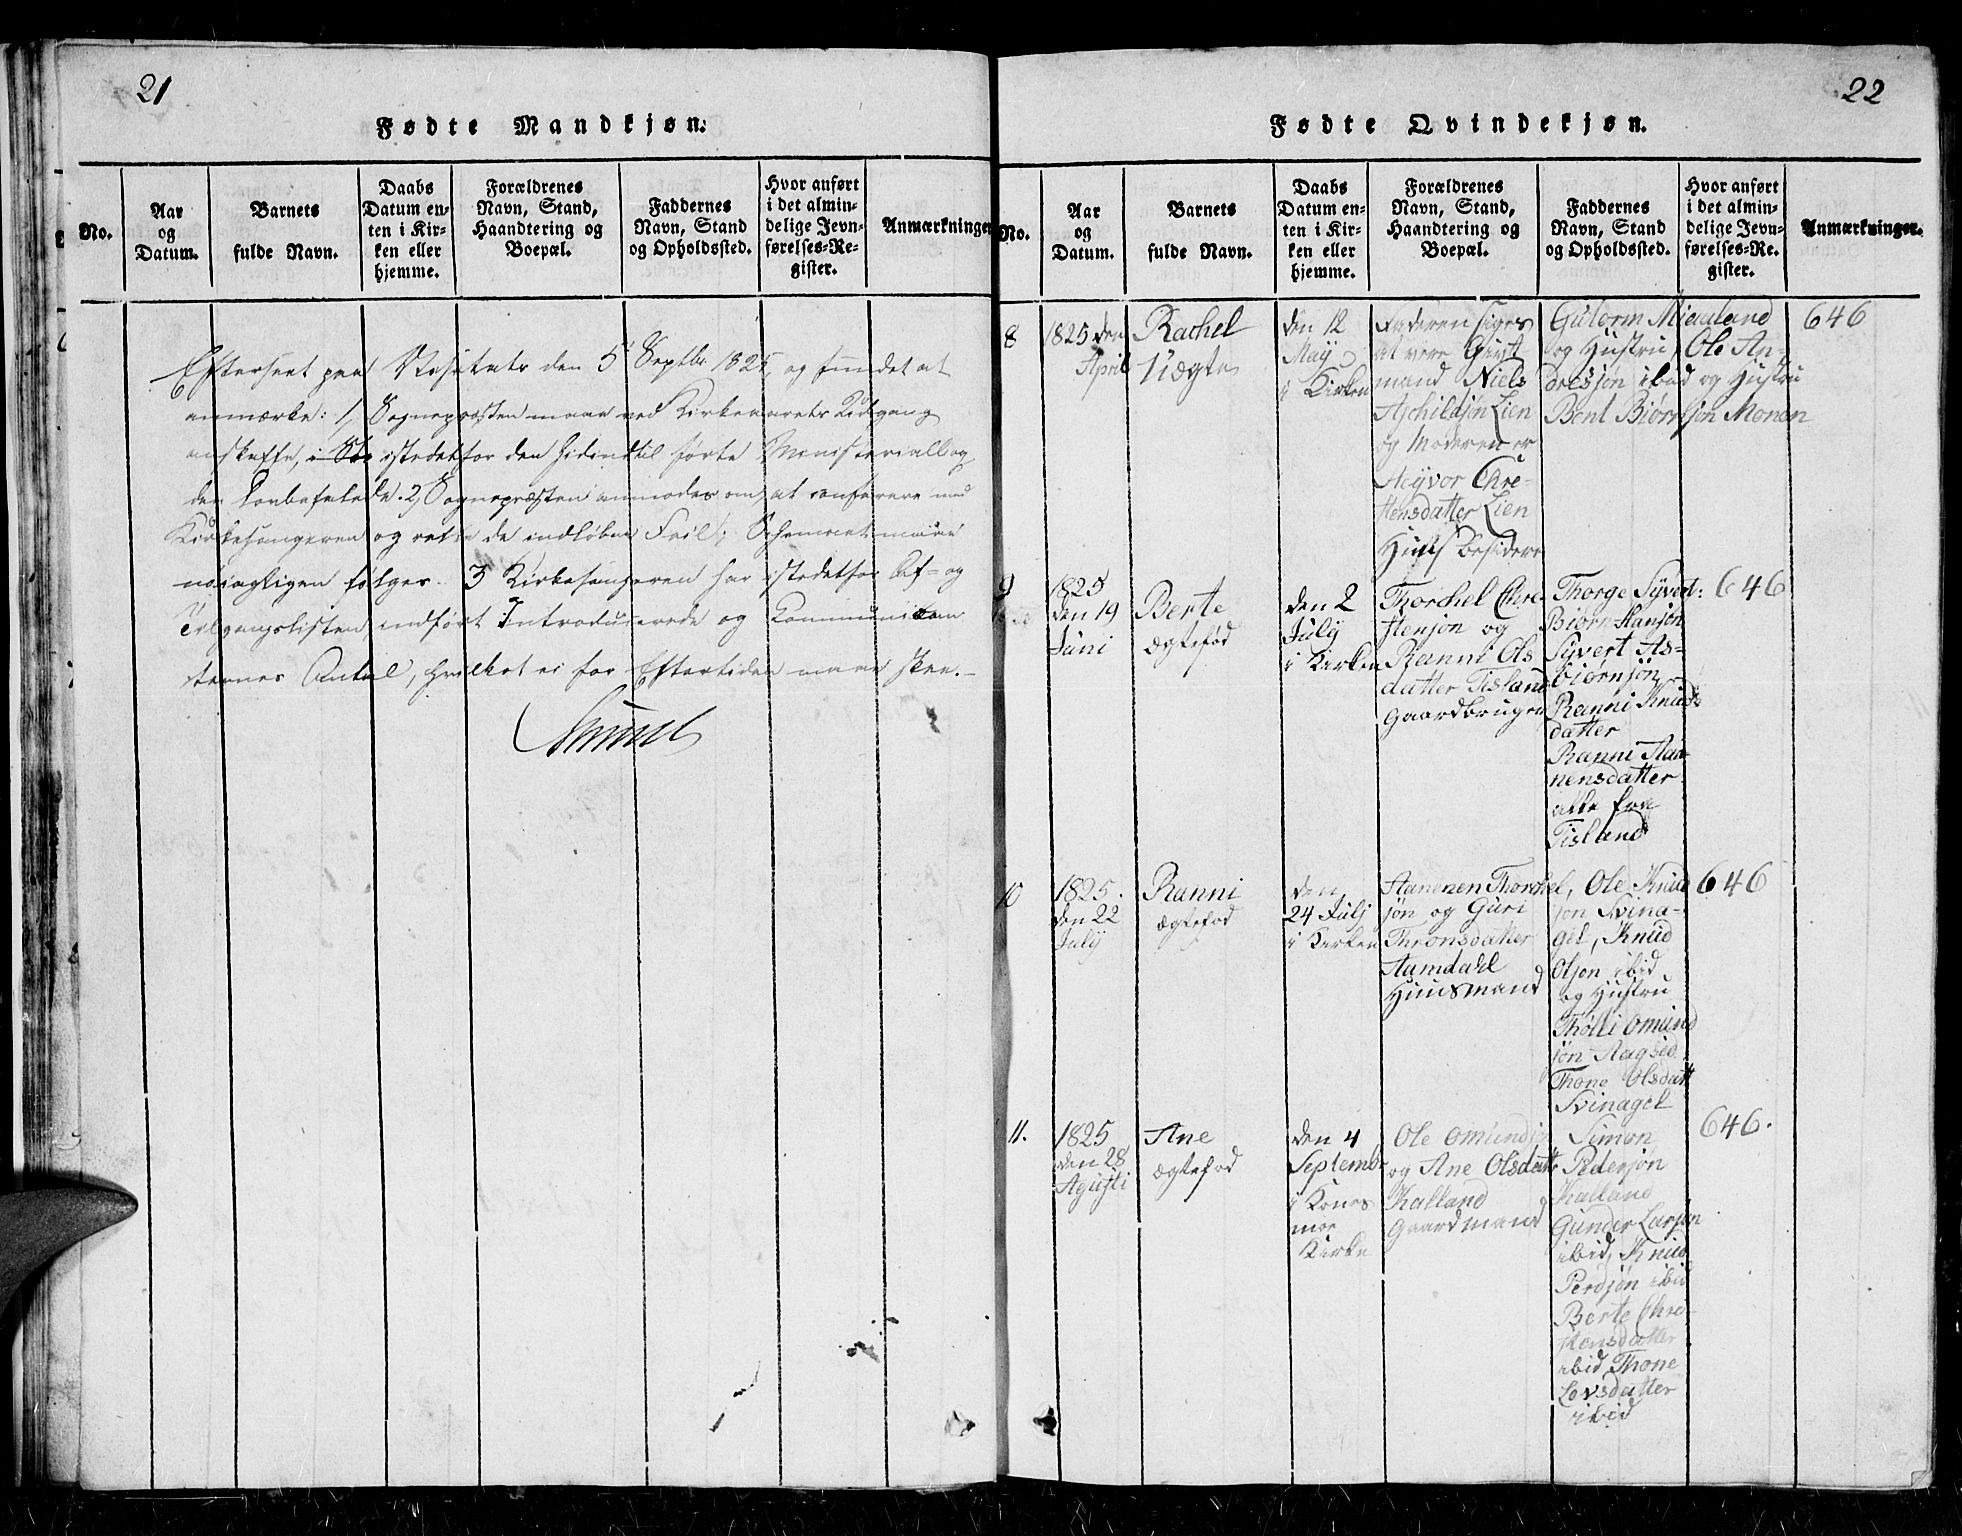 21
Fødte Mandkjøn.
No.
Aar
og
Datum.
Barnets
fulde Navn.
Daabs
Datum en-
ten i Kir-
ken eller
hjemme.
Forældrenes
Navn, Stand,
Haandtering og
Boepæl.
Faddernes
Navn, Stand
og Opholdssted.
Hvor anført
i det almin-
delige Jevn-
førelses-Re-
gister.
Anmærkninger
Efterseet paa Visitats den 5 Septbr 1825, og fundet at
anmærke: 1, Sognepræsten maae ved Kirkeaarets Udgang
anskaffe, istedetfor den hidindtil førte Ministerialbog
den anbefalede. 2) Sognepræsten anmodes om, at conferere med
Kirkesangeren og rette de indløbne Feil; Schemaet maae
nøiagtigen følges. 3 Kirkesangeren har istedetfor Af- og
Tilgangslisten indført Introducerede og Communican
ternes Antal, hvilket ei for Eftertiden maae skee.
22
Fødte Qvindekjøn.
No.
Aar
og
Datum.
Barnets
fulde Navn.
Daabs
Datum en-
ten i Kir-
ken eller
hjemme.
Forældrenes
Navn, Stand,
Haandtering og
Boepæl.
Faddernes
Navn, Stand
og Opholdssted.
Hvor anført
i det almin-
delige Jevn-
førelses-Re-
gister.
Anmærkninger.
8
1825 den
April
Rachel
Uægte
den 12
May
i Kirken
Faderen siges
at være Givt
mand Niels
Aschildsøn Lien
og Moderen er
Aasvor Chre-
stensdatter Lien
Guttorm Mieuland
og Hustru, Ole An-
dresjøn ibid og Hustru
Bent Biørnsjøn Monen
646
9
1825
den 19
Juni
Berte
ægtefød
den 2
July
i Kirken
Thorchel Chre-
stensøn og
Ranni Ols
datter Tisland
Gaardbruger
Thorge Syvert:
Biørn Hansøn
Syvert As-
biørnsøn
Ranni Knuds
datter
Ranni Aan-
nensdatter
alle fra
Tisland
646
10
1825.
den 22
July
Ranni
ægtefød
den
24 July
i Kirken
Aanenen Thorchel
søn og Guri
Thronsdatter
Aamdahl
Huusmand
Ole Knud
søn Svina-
gel, Knud
Olsøn ibid
og Hustru
Thølli Omund
søn Aagsed
Thone Olsdatt
Svinagel
646
11.
1825
den 28
Agusti
Ane
ægtefød
den 4
Septembr
i Kones
moe
Kirke
Ole Omundsø
og Ane Olsdatt
Kalland
Gaardmand
Simon
Pedersøn
Kalland
Gunder Larsøn
ibid, Knud
Perdsøn ibid
Berte Chre-
stensdatter
ibid Thone
Lovsdatter
ibid
646.